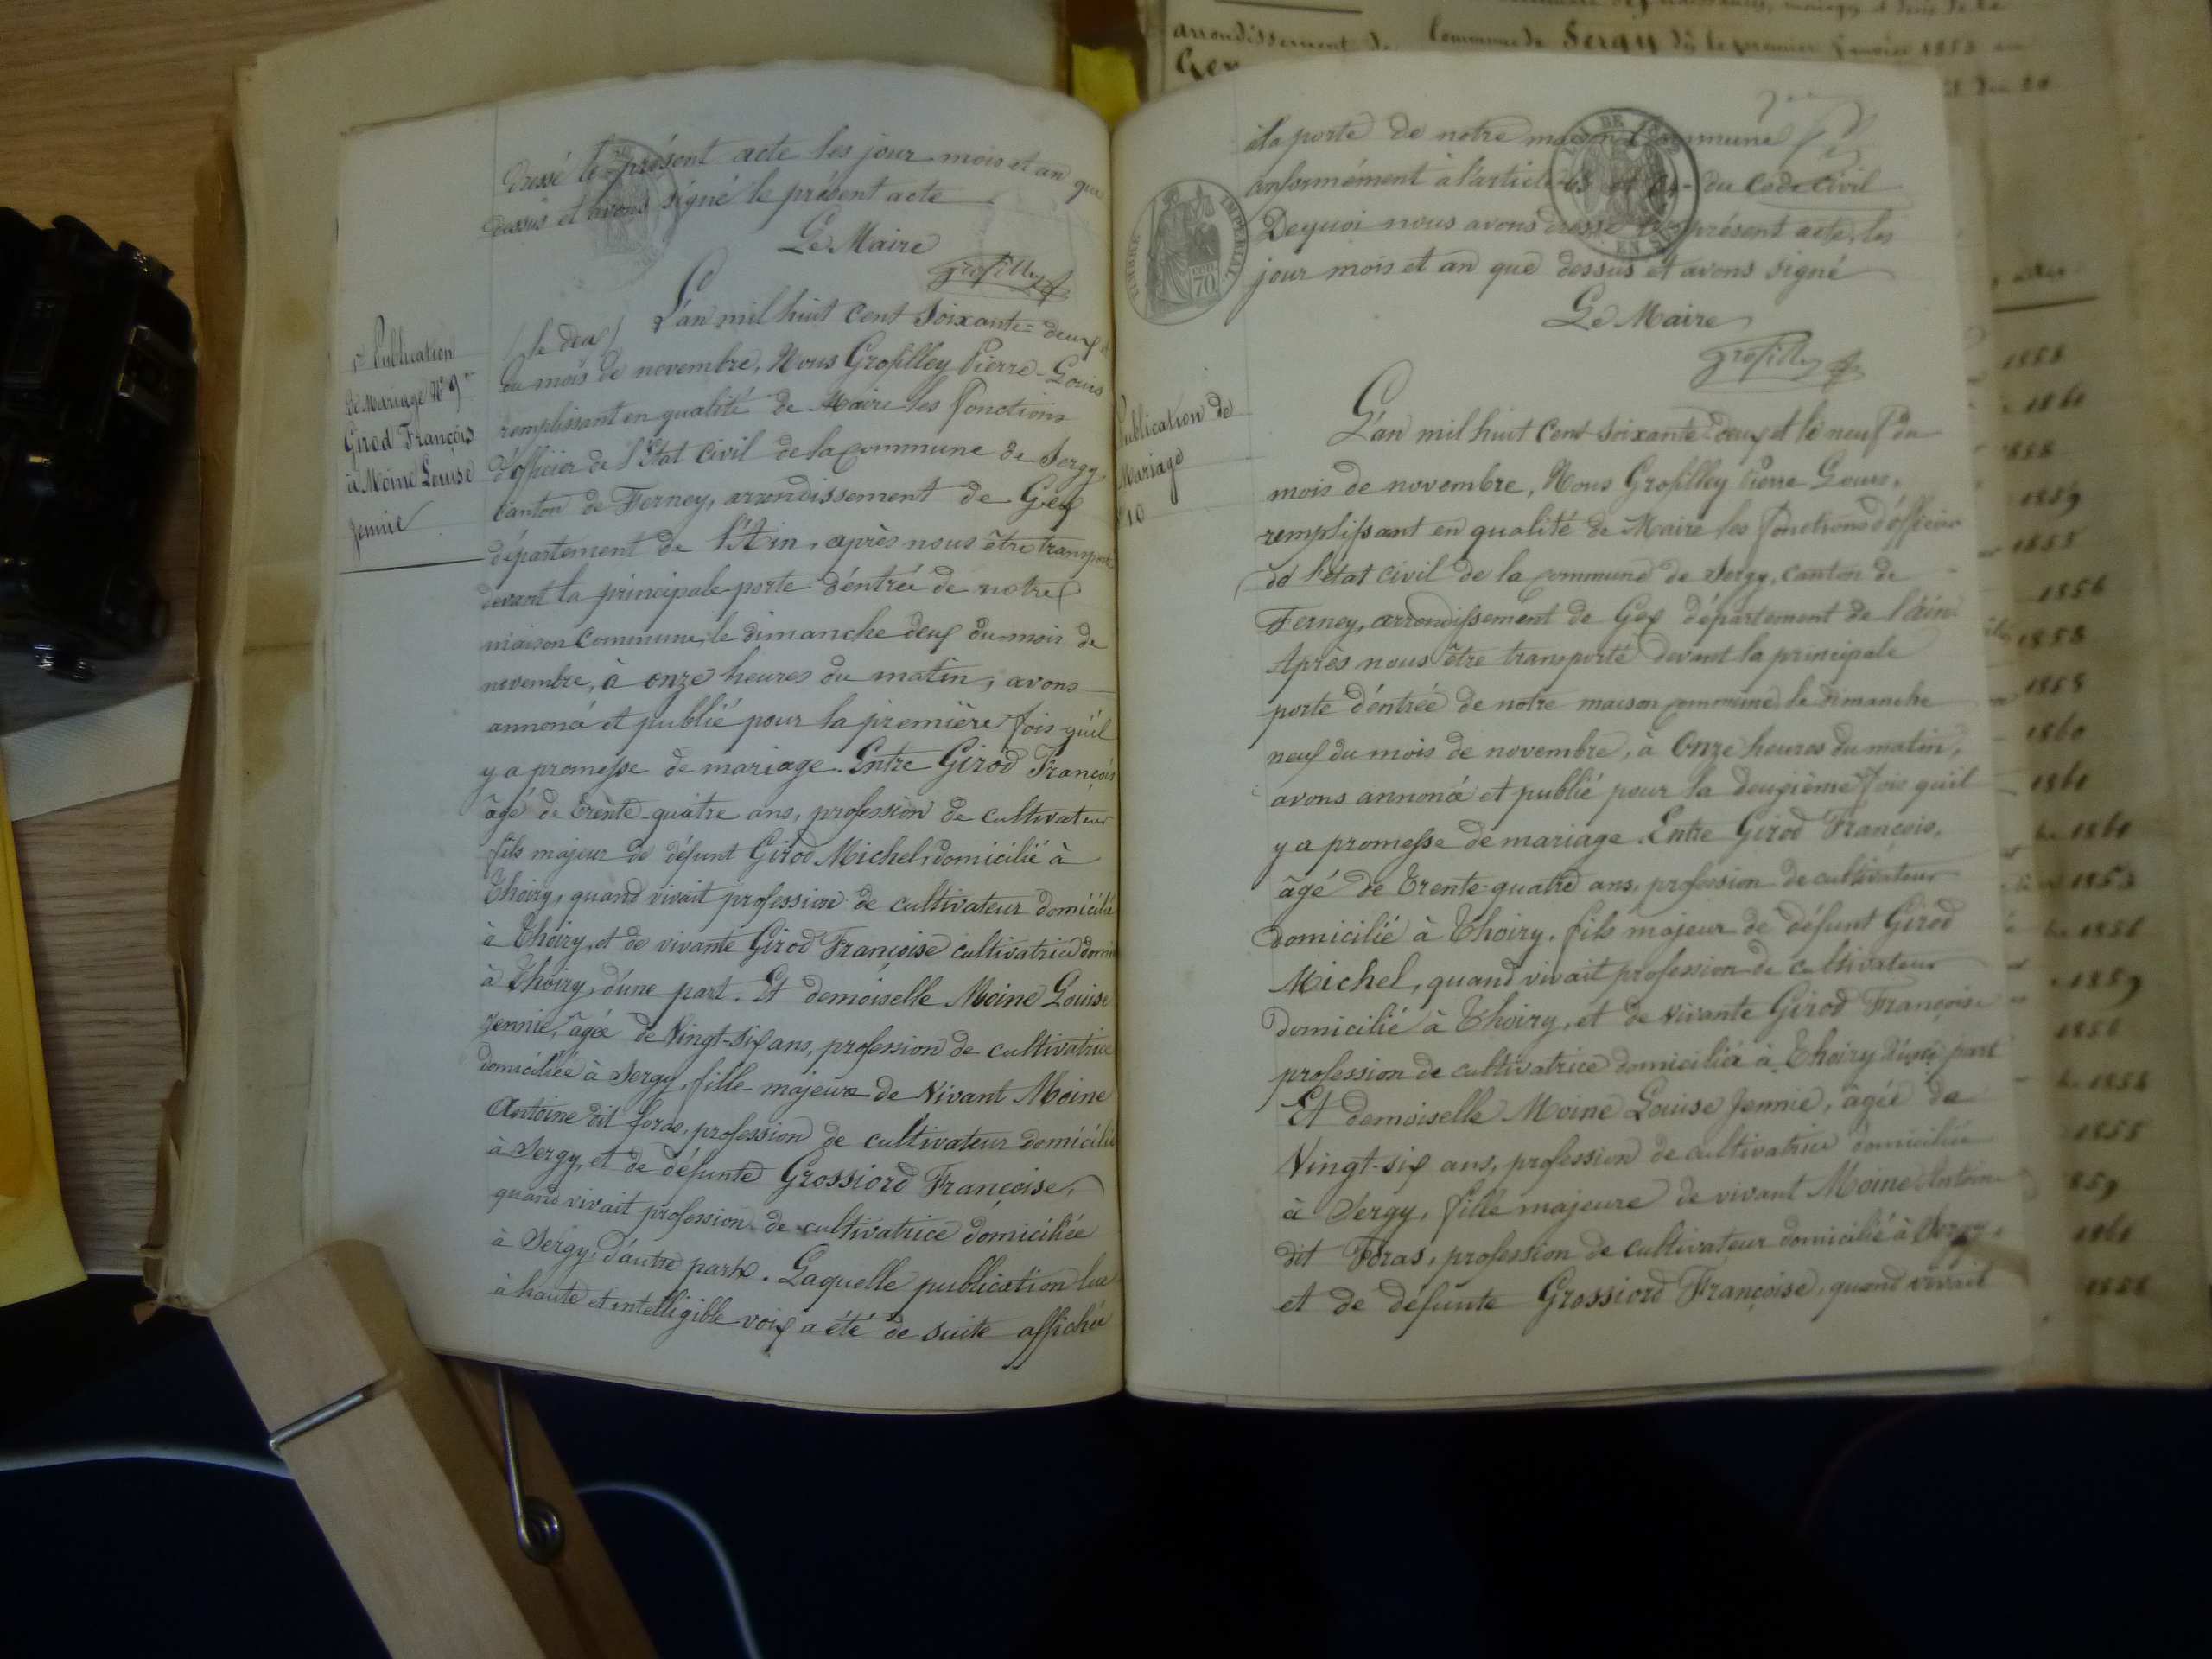 dressé le présent acte les jour mois et an que
dessus et avons signé le présent acte
Le Maire
Grosfilley
1re Publication
de Mariage N° 9
Girod François
à Moine Louise
Jennie
L'an mil huit cent soixante-deux
/ le deux /
du mois de novembre, Nous Grosfilley Pierre-Louis
remplissant en qualité de Maire les fonctions
d'officier de l'Etat civil de la commune de Sergy
canton de Ferney, arrondissement de Gex
département de l'Ain, après nous être transporté
devant la principale porte d'éntrée de notre
maison commune, le dimanche deux du mois de
novembre, à onze heures du matin, avons
annoncé et publié pour la première fois qu'il
y a promesse de mariage. Entre Girod François
âgé de trente-quatre ans, profession de cultivateur
fils majeur de défunt Girod Michel, domicilié à
Thoiry, quand vivait profession de cultivateur domicilié
à Thoiry, et de vivante Girod Françoise cultivatrice domi
à Thoiry, d'une part. Et demoiselle Moine Louise
Jennie, âgée de Vingt-six ans, profession de cultivatrice
domiciliée à Sergy, fille majeure de Vivant Moine
Antoine dit foras, profession de cultivateur domicilié
à Sergy, et de défunte Grossiord Françoise,
quand vivait profession de cultivatrice domiciliée
à Sergy, d'autre part. Laquelle publication lue
à haute et intelligible voix a été de suite affichée
à la porte de notre maison commune
conformément à l'article 63 du Code Civil
De quoi nous avons dressé le présent acte, les
jour mois et an que dessus et avons signé
Le Maire
Grosfilley
TIMBRE IMPERIAL
70
Publication de
Mariage
10
L'an mil huit cent soixante-deux et le neuf du
mois de novembre, Nous Grosfilley Pierre Louis,
remplissant en qualité de Maire les fonctions d'officier
de l'état civil de la commune de Sergy, canton de
Ferney, arrondissement de Gex département de l'Ain
Après nous être transporté devant la principale
porte d'éntrée de notre maison commune, le dimanche
neuf du mois de novembre, à Onze heures du matin,
avons annoncé et publié pour la deuxième fois qu'il
y a promesse de mariage. Entre Girod François,
âgé de trente-quatre ans, profession de cultivateur
domicilié à Thoiry, fils majeur de défunt Girod
Michel, quand vivait profession de cultivateur
domicilié à Thoiry, et de vivante Girod Françoise
profession de cultivatrice domiciliée à Thoiry d'une part
Et demoiselle Moine Louise Jennie, âgée de
Vingt-six ans, profession de cultivatrice domiciliée
à Sergy, fille majeure de vivant Moine Antoine
dit Foras, profession de cultivateur domicilié à Sergy,
et de défunte Grossiord Françoise, quand vivait
arrondissement de
Gex
Commune de Sergy
1858
1860
1858
1859
1855
1856
1858
1858
1860
1861
1860
1853
1856
1859
1856
1856
1858
859
1861
1856